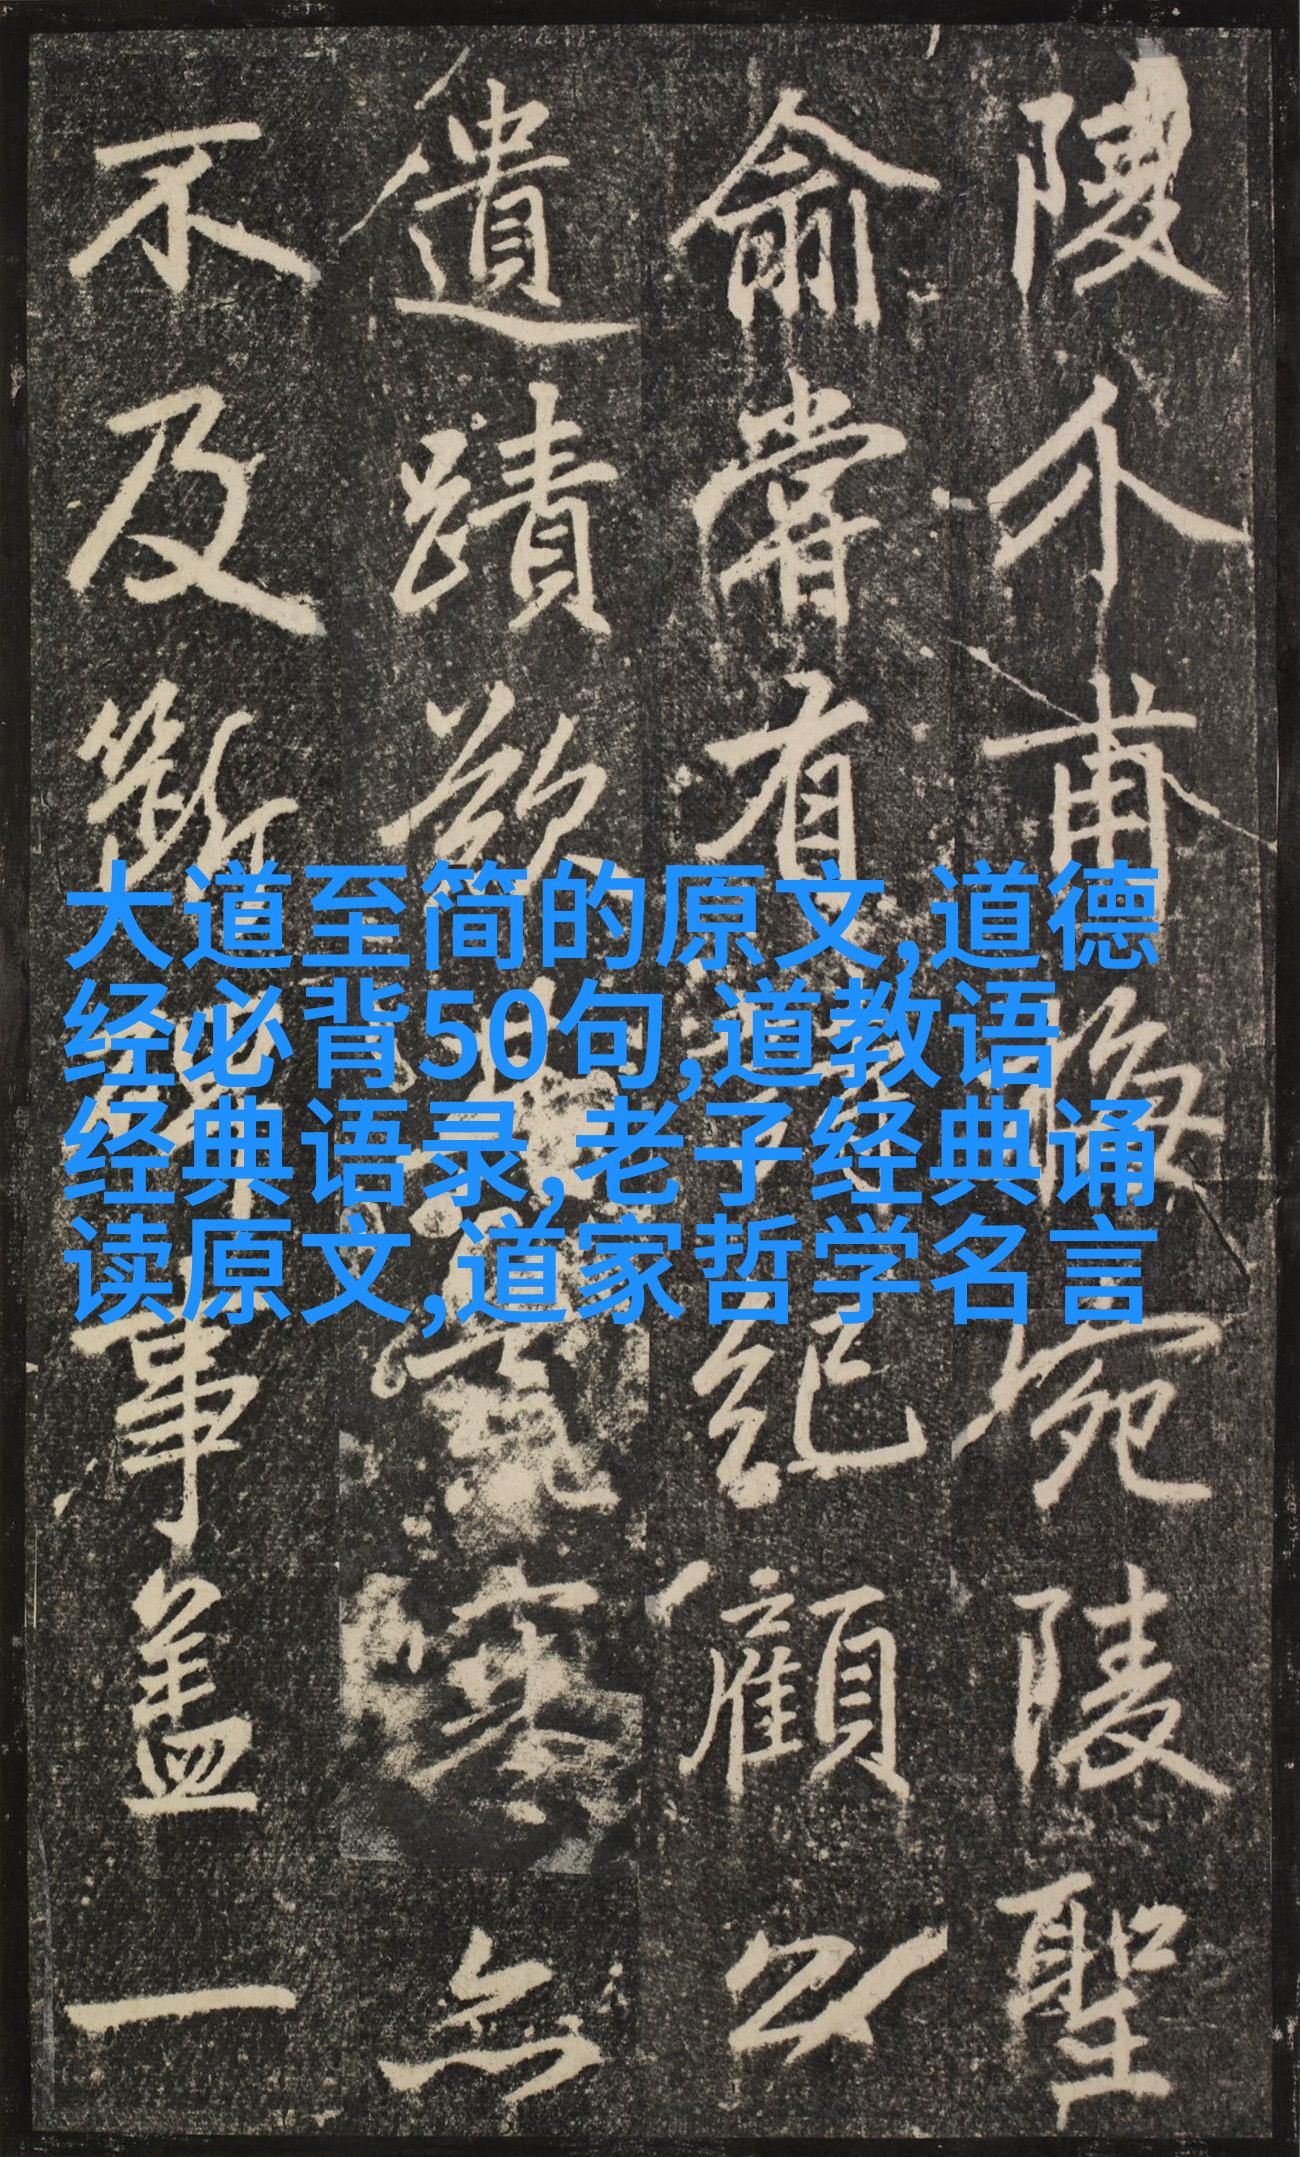 陵介甫梅宛陵聖
俞嘗有詩紀顧公
遺蹟欲寒
不及斷事蓋一
大道至简的原文,道德
经必背50句,道教语
经典语录,老子经典诵
读原文,道家哲学名言